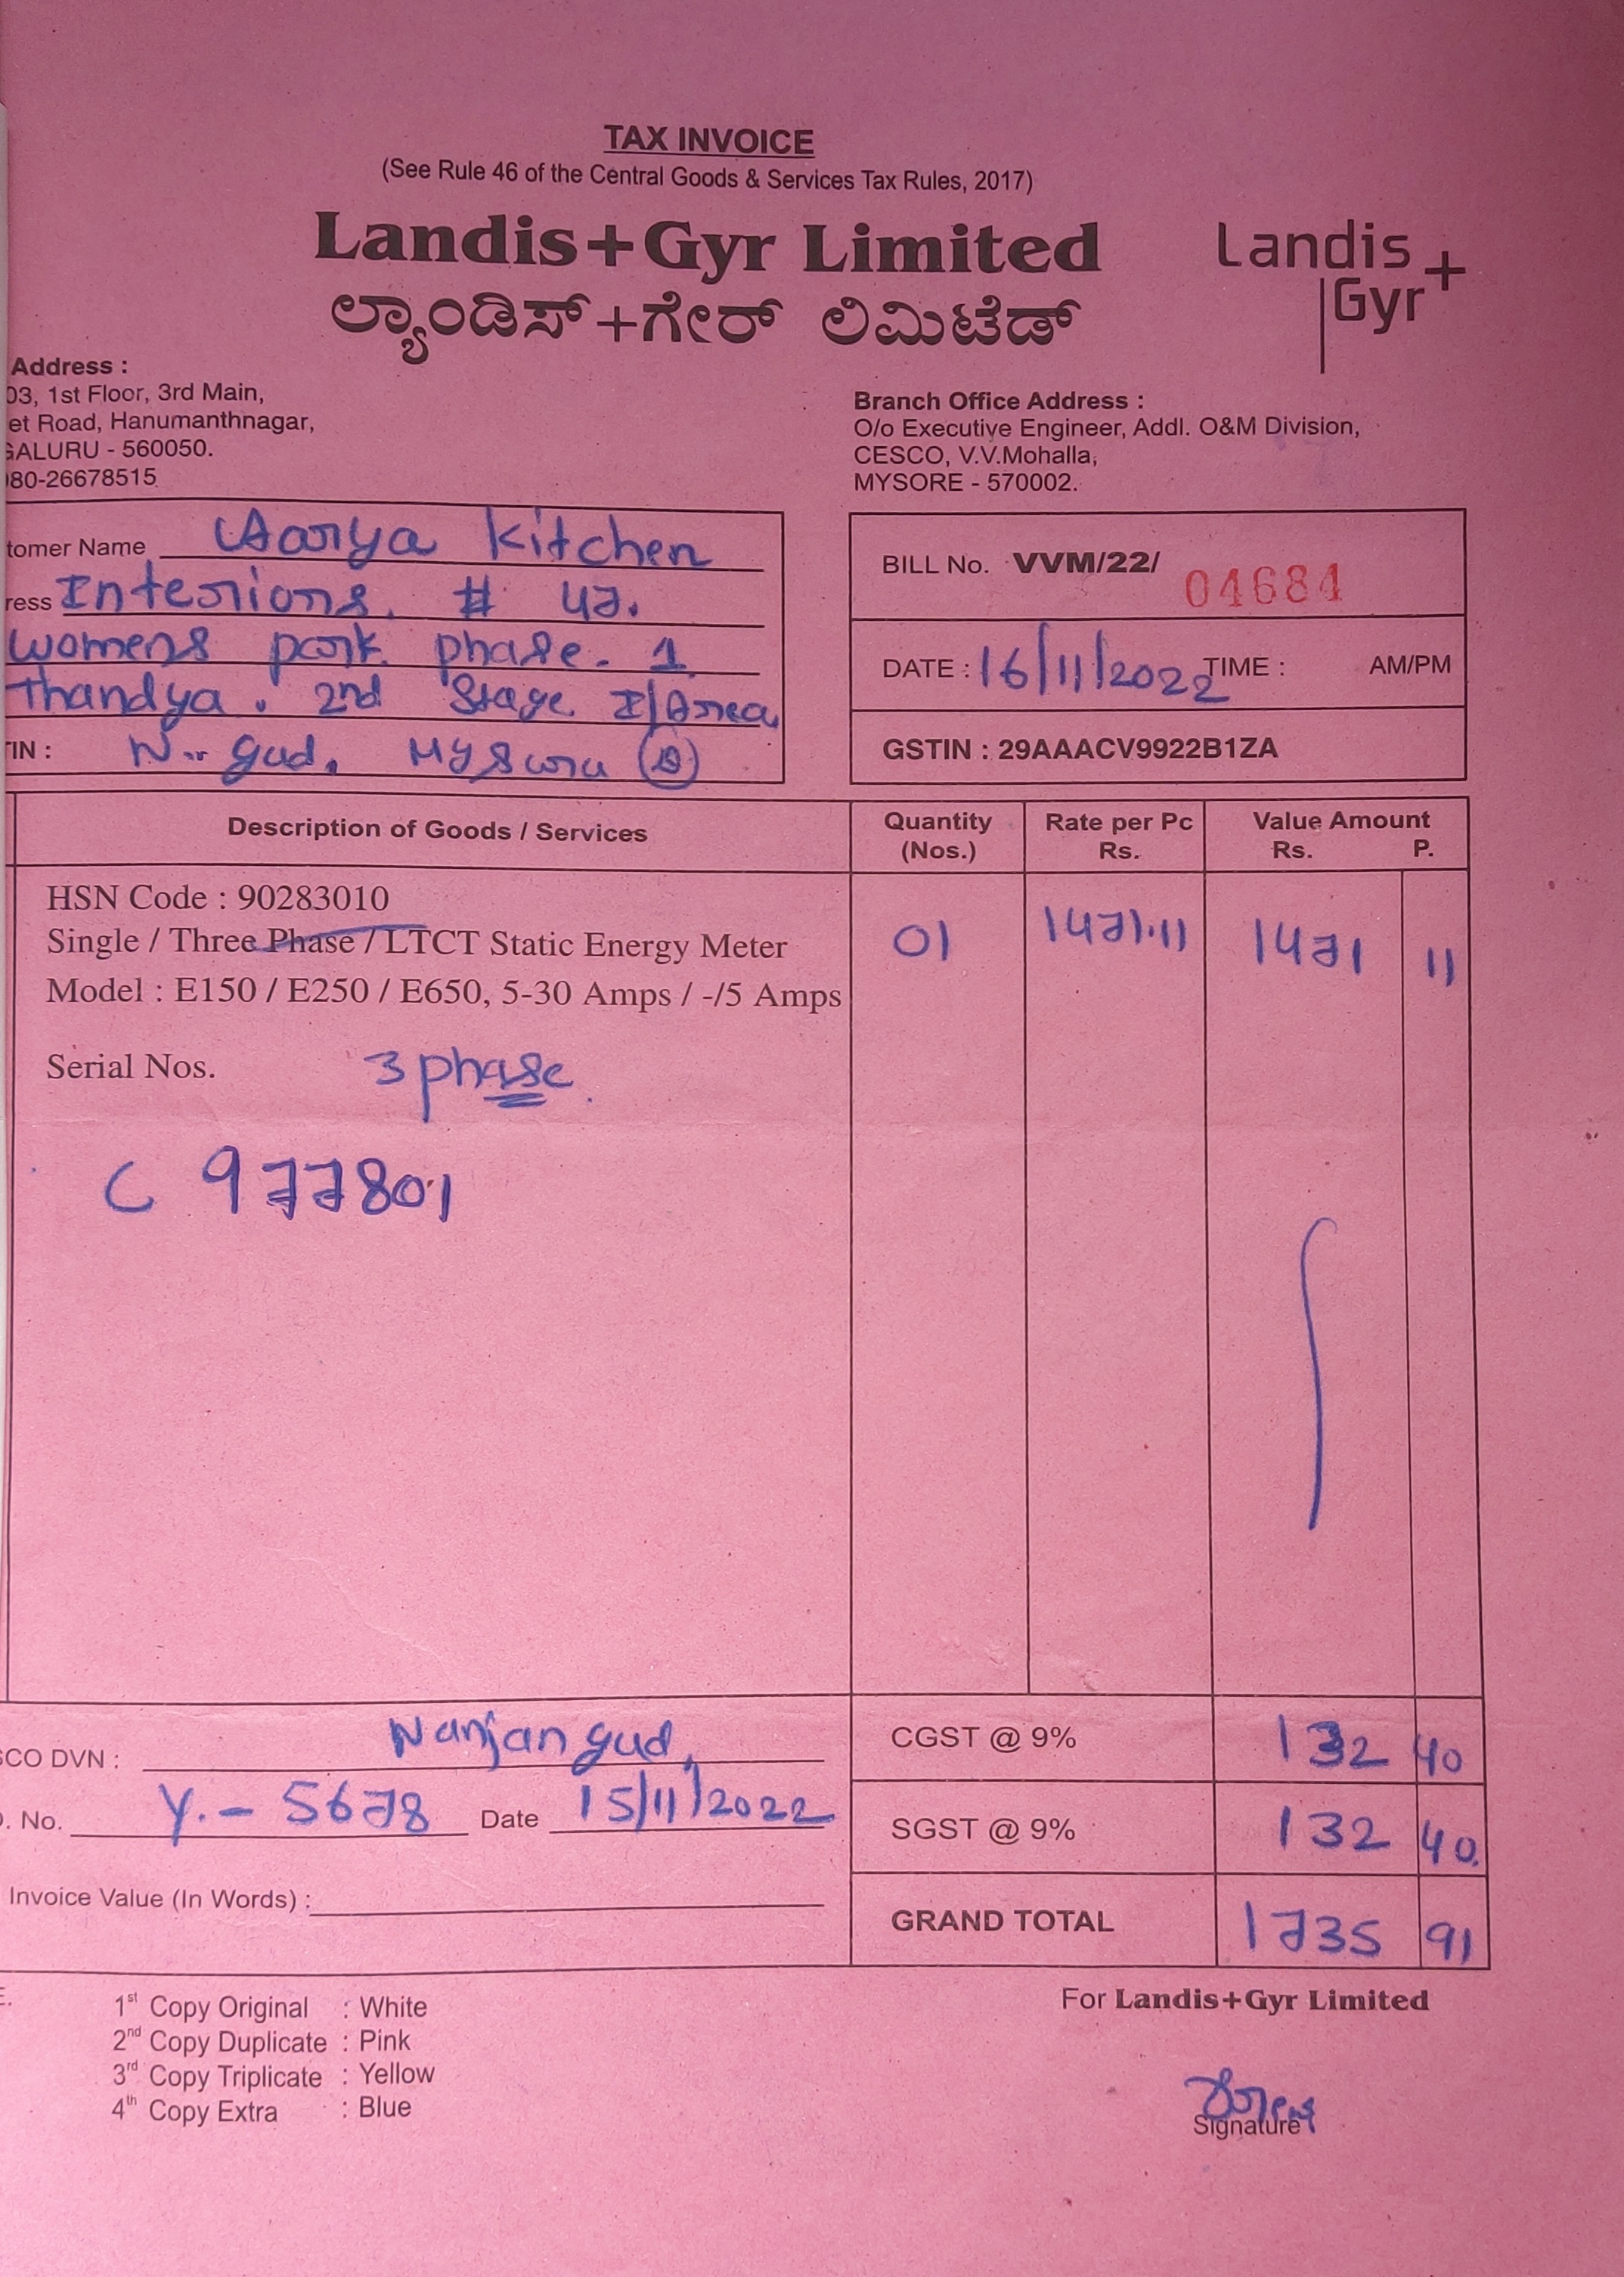 TAX INVOICE
(See Rule 46 of the Central Goods & Services Tax Rules, 2017)
Landis+Gyr Limited
Landis+
Gyr
ಲ್ಯಾಂಡಿಸ್+ಗೇರ್ ಲಿಮಿಟೆಡ್
Address :
03, 1st Floor, 3rd Main,
et Road, Hanumanthnagar,
GALURU - 560050.
080-26678515
Branch Office Address :
O/o Executive Engineer, Addl. O&M Division,
CESCO, V.V.Mohalla,
MYSORE - 570002.
tomer Name Aarya Kitchen
ress Interiors. # 47.
Womens park phase. 1
Thandya. 2nd Stage I/Area
TIN : N..gud. Mysuru (D)
BILL No. VVM/22/ 04684
DATE : 16/11/2022 TIME : AM/PM
GSTIN : 29AAACV9922B1ZA
Description of Goods / Services Quantity (Nos.) Rate per Pc Rs. Value Amount Rs. P.
HSN Code : 90283010
Single / Three Phase / LTCT Static Energy Meter 01 1471.11 1471 11
Model : E150 / E250 / E650, 5-30 Amps / -/5 Amps
Serial Nos. 3 phase.
C 977801
SCO DVN : Nanjangud,
CGST @ 9% 132 40
O. No. Y.- 5678 Date 15/11/2022
SGST @ 9% 132 40.
Invoice Value (In Words) :
GRAND TOTAL 1735 91
E.
1st Copy Original : White
2nd Copy Duplicate : Pink
3rd Copy Triplicate : Yellow
4th Copy Extra : Blue
For Landis+Gyr Limited
Signature